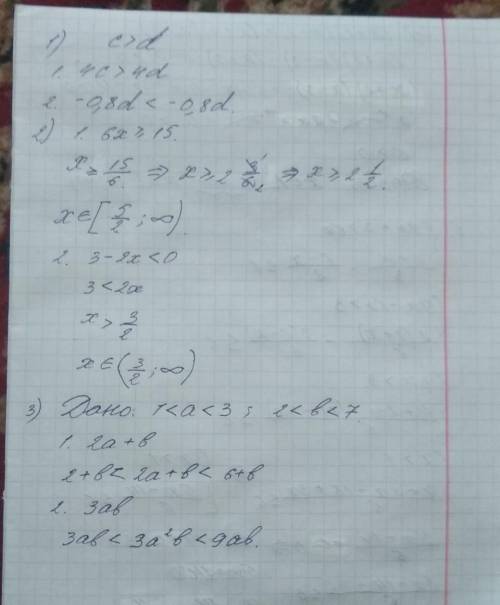 1) c>d
1. 4c>4d
2. -0,8d < -0,8d.
2) 1. 6x ≥ 15.
x ≥ 15/6. ⇒ x ≥ 2 3/6 1/2 ⇒ x ≥ 2 1/2.
x ∈ [5/2; ∞).
2. 3-2x<0
3<2x
x > 3/2
x ∈ (3/2; ∞)
3) Дано: 1<a<3; 2<b<7.
1. 2a+b
2+b < 2a+b < 6+b
2. 3ab
3ab < 3a²b < 9ab.